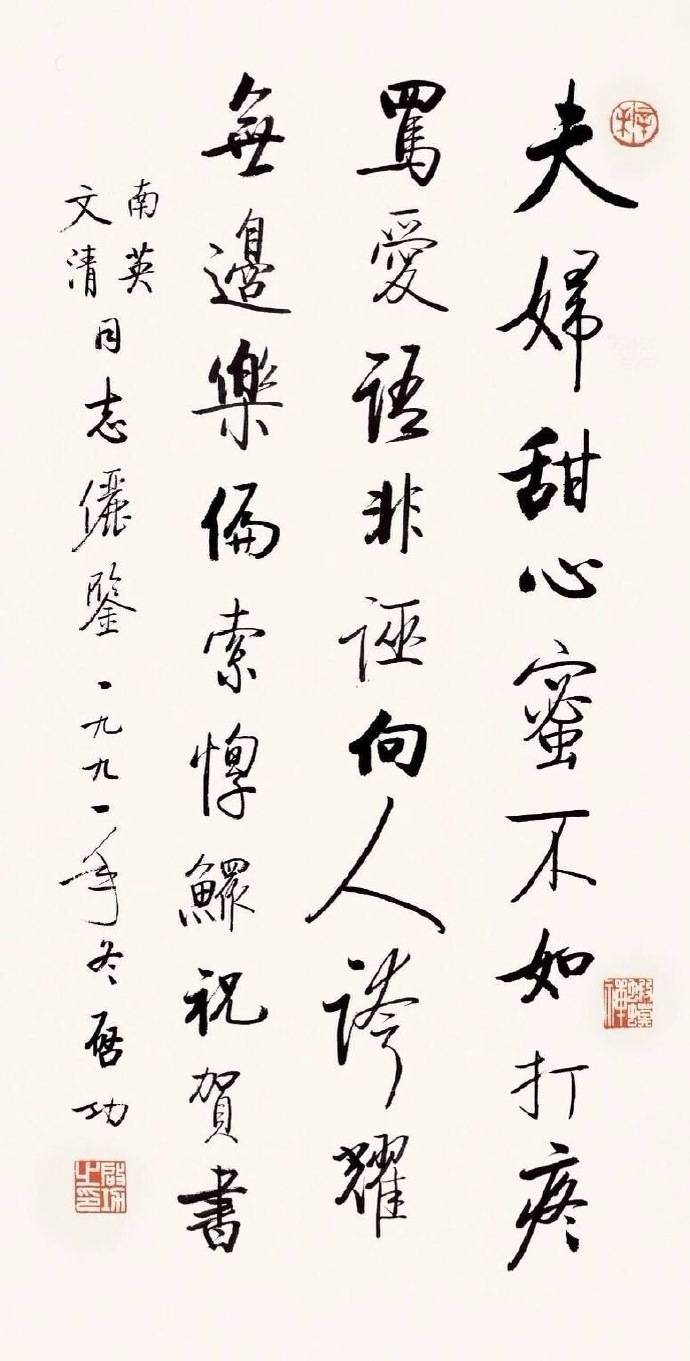 夫婦甜心蜜不如打疼
罵愛語非誣向人誇耀
無邊樂偏索惸鰥祝賀書
南英
文清
同志儷鑒一九九一年冬啓功
啟功之印